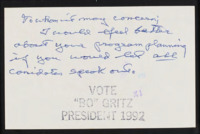 To whom it may concern;
I would feel better
about your program planning
if you would let all
canidates speak out.
VOTE
"BO" GRITZ
PRESIDENT 1992